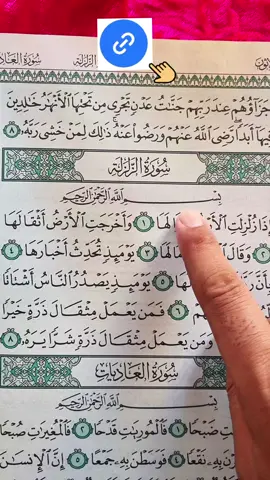 سُورَةُ العَادِيَاتِ الزلزلة
جَزَآؤُهُمْ عِندَ رَبِّهِمْ جَنَّٰتُ عَدْنٍ تَجْرِى مِن تَحْتِهَا ٱلْأَنْهَٰرُ خَٰلِدِينَ
فِيهَآ أَبَدًا رَّضِىَ ٱللَّهُ عَنْهُمْ وَرَضُوا۟ عَنْهُ ذَٰلِكَ لِمَنْ خَشِىَ رَبَّهُۥ ٨
سُورَةُ الزَّلْزَلَةِ
بِسْمِ ٱللَّهِ ٱلرَّحْمَٰنِ ٱلرَّحِيمِ
إِذَا زُلْزِلَتِ ٱلْأَرْضُ لَهَا ١ وَأَخْرَجَتِ ٱلْأَرْضُ أَثْقَالَهَا
٢ وَقَالَ لَهَا ٣ يَوْمَئِذٍ تُحَدِّثُ أَخْبَارَهَا ٤
بِأَنَّ لَهَا ٥ يَوْمَئِذٍ يَصْدُرُ ٱلنَّاسُ أَشْتَاتًا
٦ فَمَن يَعْمَلْ مِثْقَالَ ذَرَّةٍ خَيْرًا
وَمَن يَعْمَلْ مِثْقَالَ ذَرَّةٍ شَرًّا يَرَهُۥ ٨
سُورَةُ العَادِيَاتِ
بِسْمِ ٱللَّهِ ٱلرَّحْمَٰنِ ٱلرَّحِيمِ
ضَبْحًا ١ فَٱلْمُورِيَٰتِ قَدْحًا ٢ فَٱلْمُغِيرَٰتِ صُبْحًا
بِهِۦ نَقْعًا ٤ فَوَسَطْنَ بِهِۦ جَمْعًا ٥ إِنَّ ٱلْإِنسَٰنَ